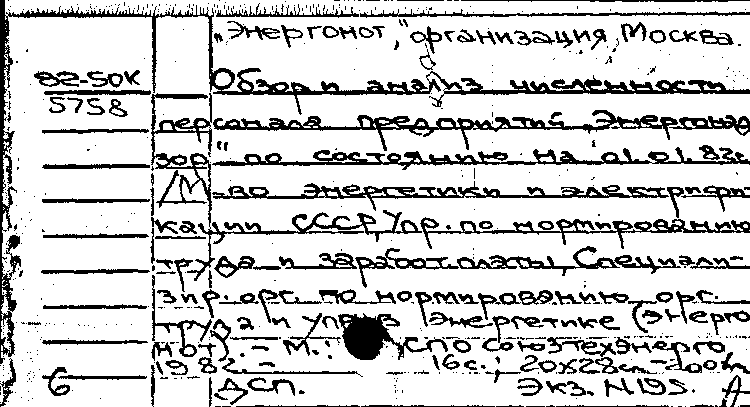 „Энергонот," организация, Москва.
82-50К Обзор и анализ численности
5758
персонала предприятий „Энергонад
зор" по состоянию на 01.01.82г.
/М-во энергетики и электрифи
кации СССР, Упр. по нормированию
труда и заработ. платы, Специали-
зир. орг. по нормированию, орг.
труда и упр. в энергетике (Энерго
нот). - М.: СПО Союзтехэнерго,
1982. - 16с.; 20х28см-200экз
6 ДСП. Экз. N195.